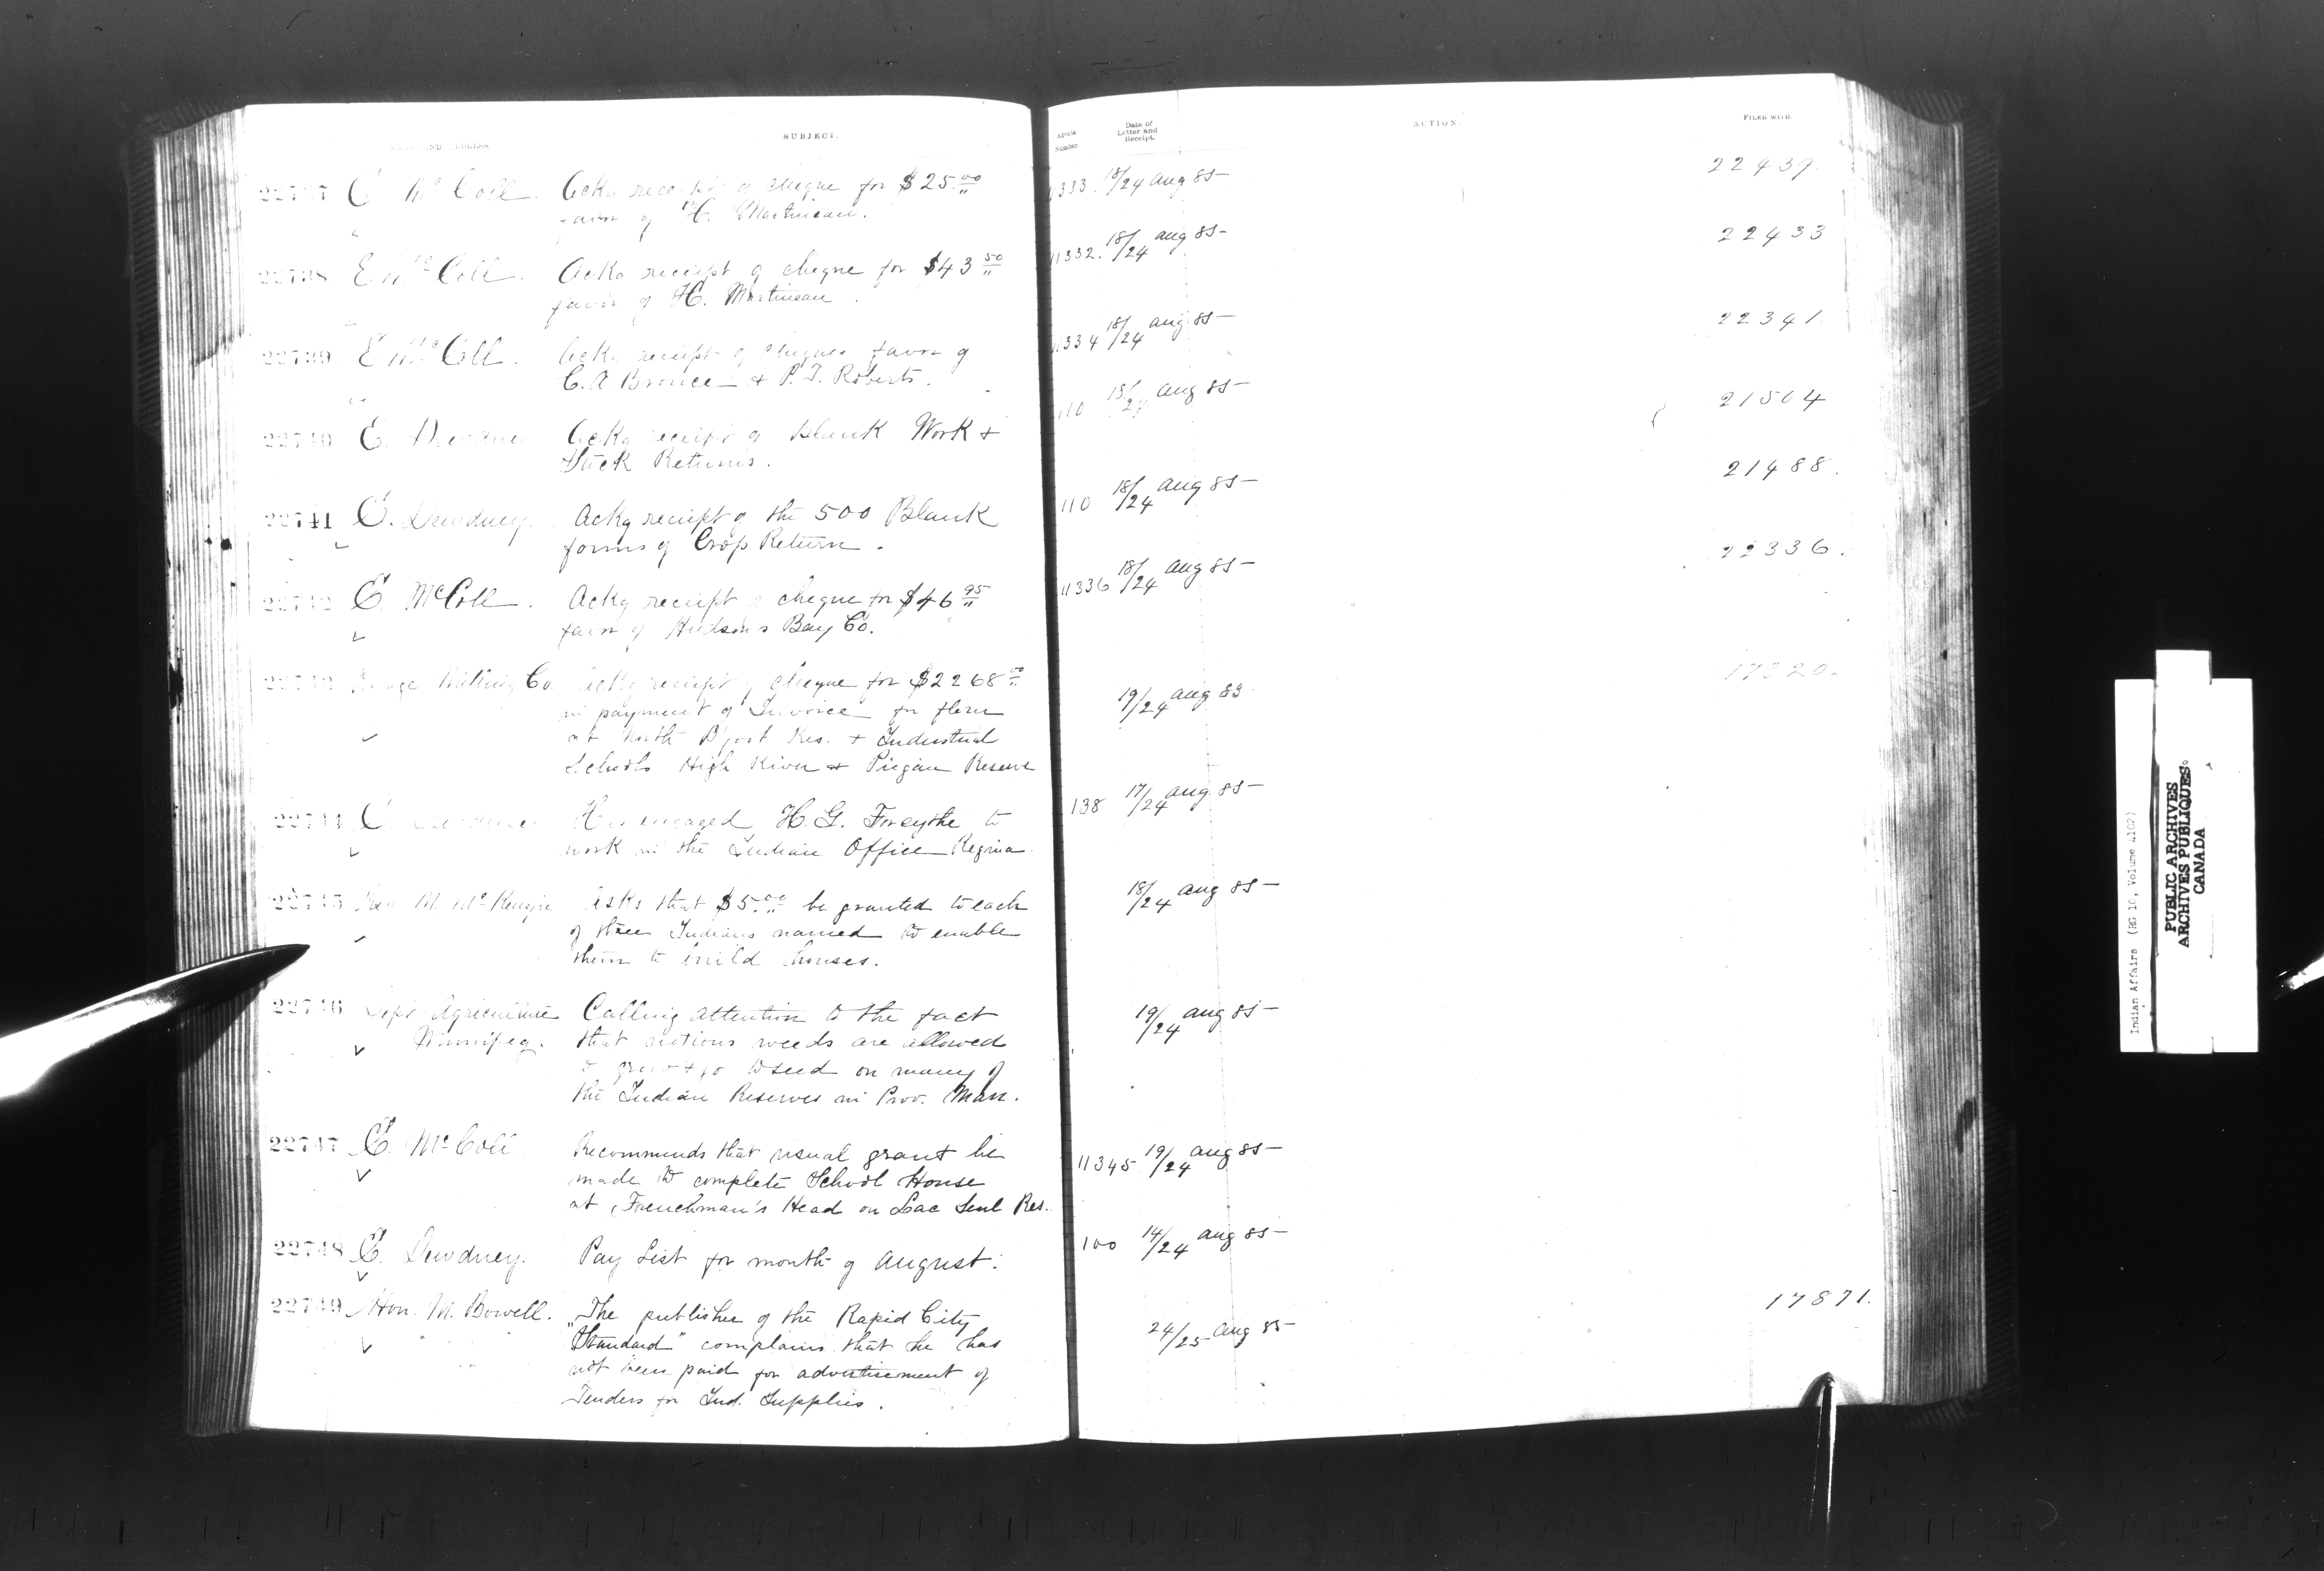 NAME AND ADDRESS.
SUBJECT.
22737 E McColl. Ackg receipt of cheque for $25.00
favor of H. Martineau.
22738 E. McColl. Ackg receipt of cheque for $43 50
favor of H. Martineau.
22739 E McColl. Ackg receipt of cheques favor of
C. A Bronce & P. T. Roberts.
22740 E. Dewdney Ackg receipt of blank Work &
Stock Returns.
22741 E. Dewdney. Ackg receipt of the 500 Blank
forms of Crop Return.
22742 E. McColl. Ackg receipt of cheque for $46 95
favor of Hudson's Bay Co.
22743 Milling Co Ackg receipt of cheque for $2268 00
in payment of Invoice for flour
at North B'ford Res. & Industrial
Schools High River & Piegan Reserve
22744 E. Dewdney Has engaged H. G. Forsythe to
work in the Indian Office Regina.
22745 Rev M. McKenzie Asks that $5.00 be granted to each
of three Indians named to enable
them to build houses.
22746 Dept Agriculture Calling attention to the fact
Winnipeg. that noxious weeds are allowed
to grow & go to seed on many of
the Indian Reserves in Prov. Man.
22747 E. McColl Recommends that usual grant be
made to complete School House
at Frenchman's Head on Lac Seul Res.
22748 E. Dewdney. Pay List for month of August.
22749 Hon. M. Bowell. The publisher of the Rapid City
"Standard" complains that he has
not been paid for advertisement of
Tenders for Ind. Supplies.
Agents Number.
Date of Letter and Receipt.
ACTION.
FILED WITH
11333. 18/24 Aug 85 22439
11332. 18/24 Aug 85 22433
11334 18/24 Aug 85 22341
110 18/24 Aug 85 21504
110 18/24 Aug 85 21488.
11336 18/24 Aug 85 22336.
19/24 Aug 85 17320.
138 17/24 Aug 85
18/24 Aug 85
19/24 Aug 85
11345 19/24 Aug 85
100 14/24 Aug 85
24/25 Aug 85 17871.
Indian Affairs (RG 10, Volume 4102)
PUBLIC ARCHIVES
ARCHIVES PUBLIQUES
CANADA